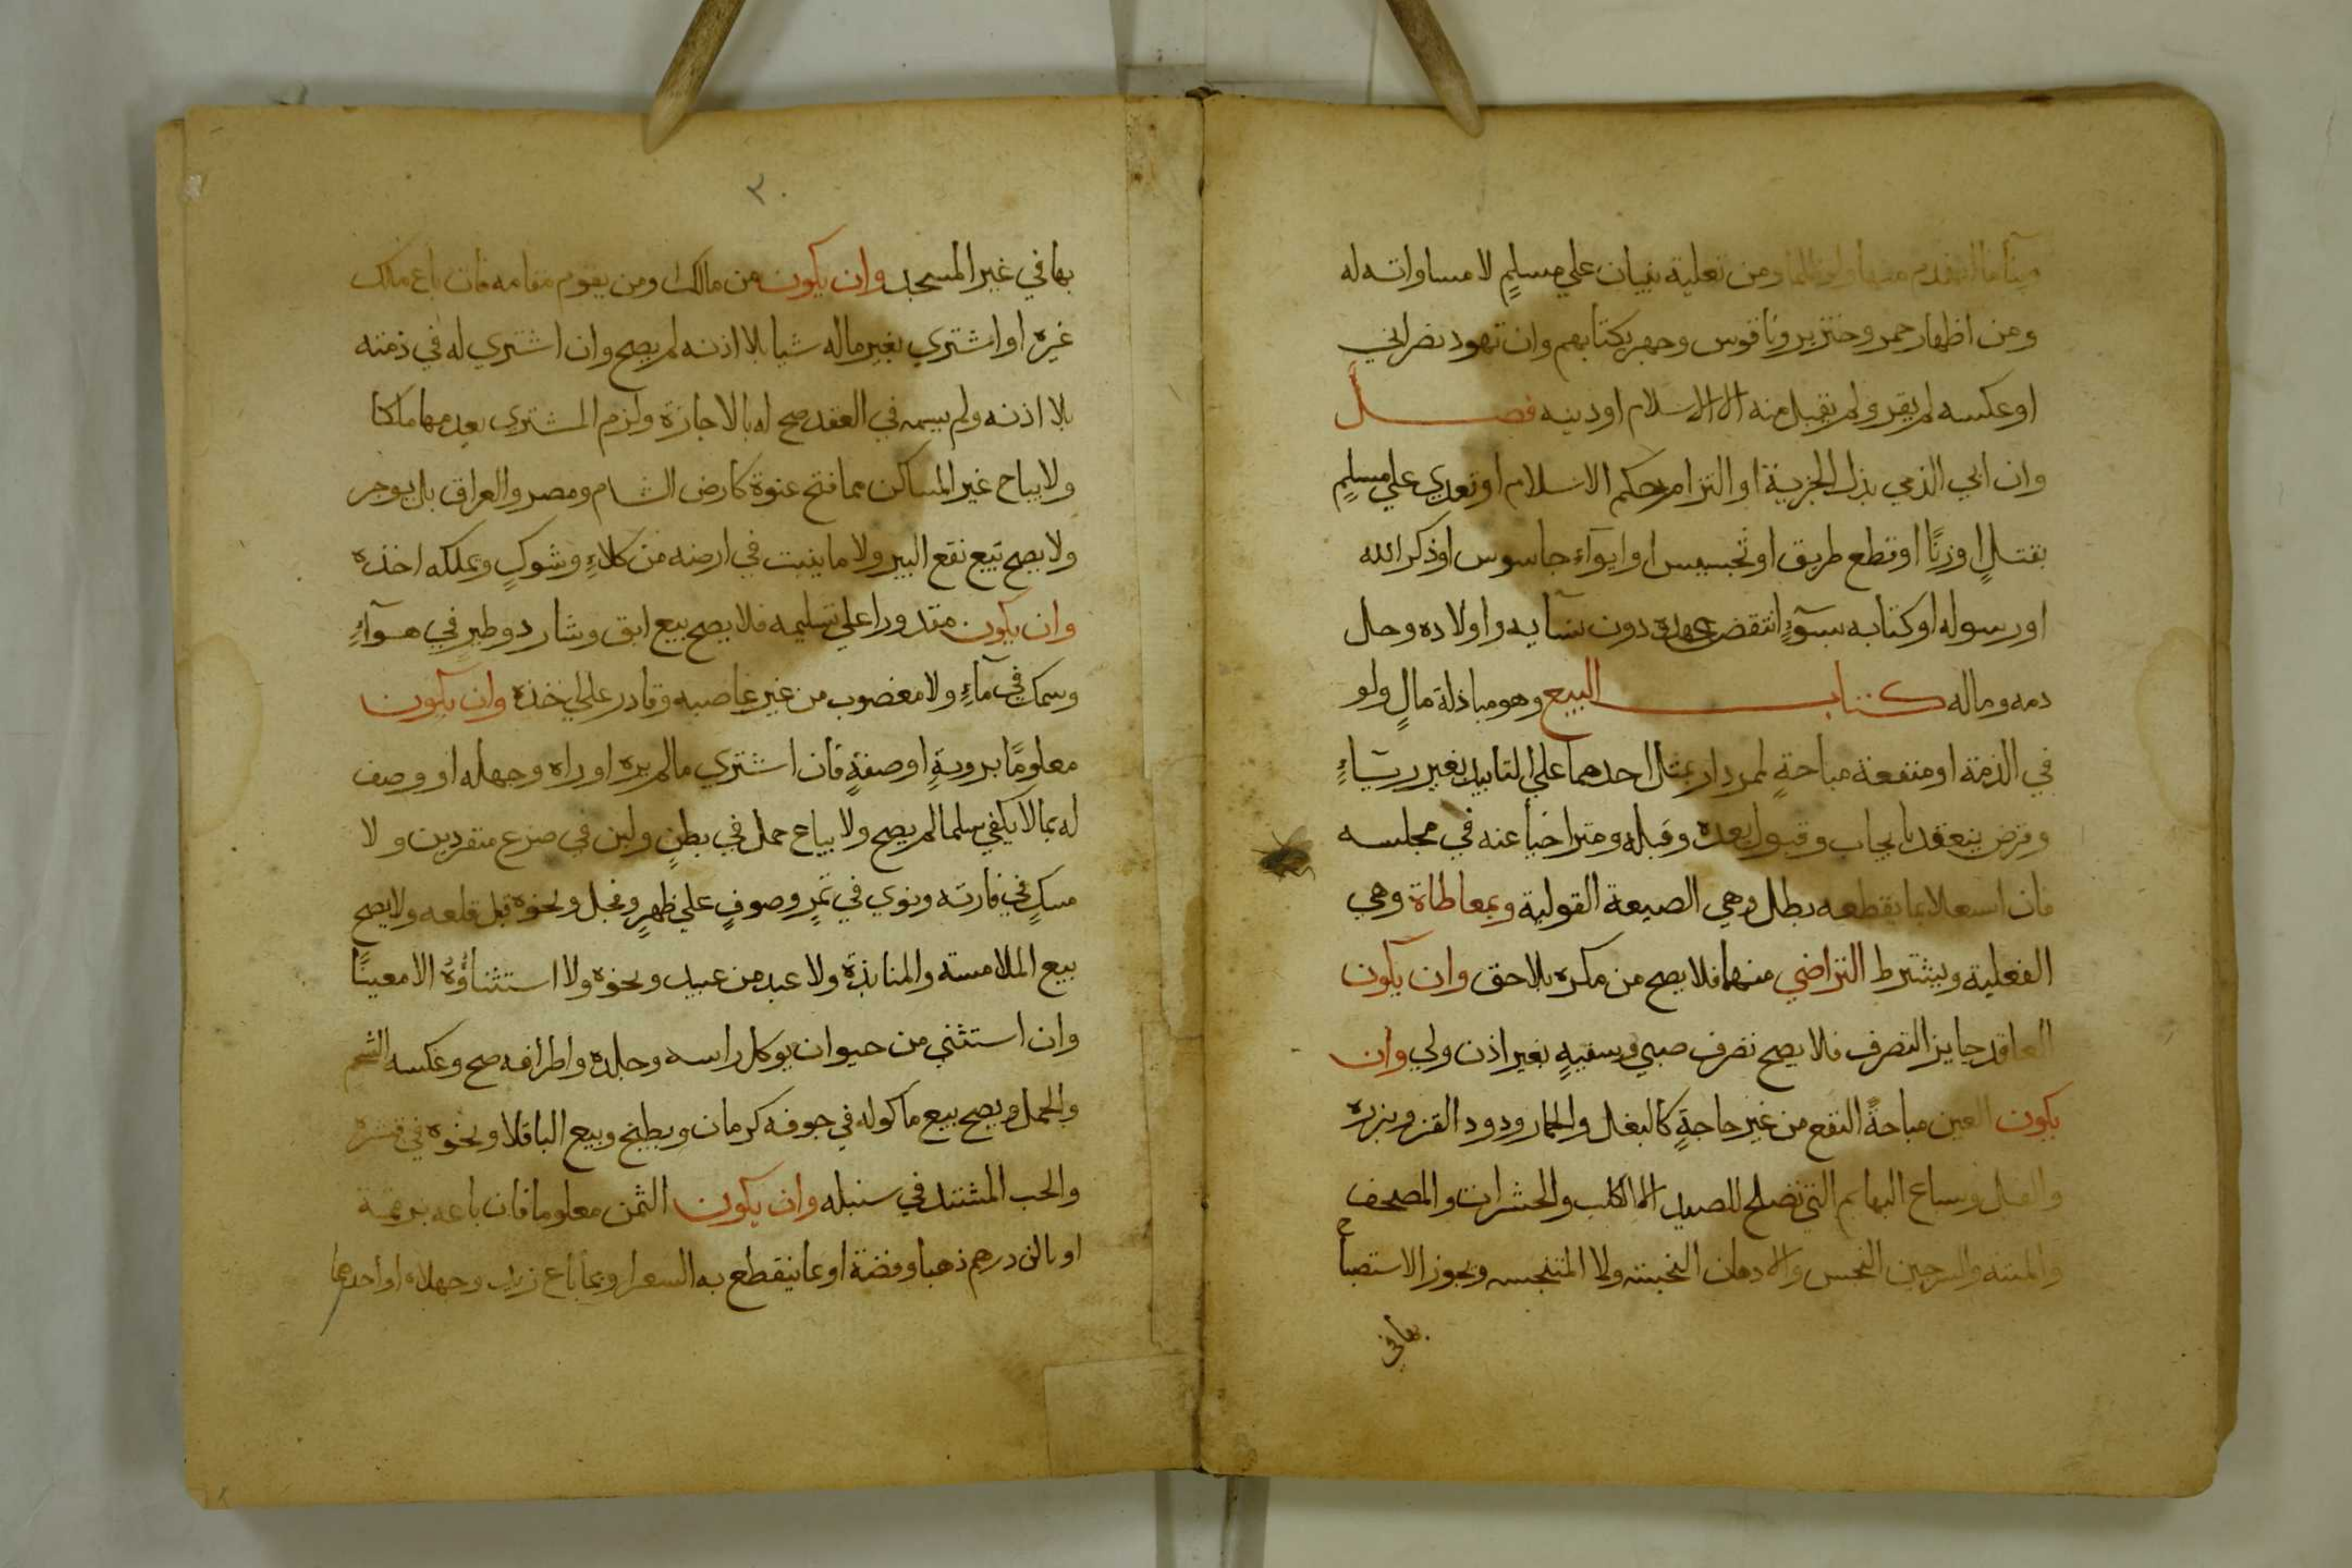 بنآما انهدم منها ولو ظلما ومن تعلية بنيان علي مسلمٍ لا مساواته له
ومن اظهار خمر وخنزير وناقوس وجهر بكتابهم وان تهود نصراني
او عكسه لم يقر ولم يقبل منه الا الاسلام او دينه فصــل
وان ابي الذمي بذل الجزية او التزام حكم الاسلام او تعدي علي مسلمٍ
بقتلٍ او زنًا او قطع طريق او تجسيس او ايوآءِ جاسوس او ذكر الله
او رسوله او كتابه بسوٓءٍ انتقض عهده دون نسآيه واولاده وحل
دمه وماله كتاب البيع وهو مباذلة مالٍ ولو
في الذمة او منفعة مباحةٍ لممر دار بمثل احدهما علي التابيد بغير ربآءٍ
وقرض ينعقد بايجاب وقبول بعده وقبله ومتراخيا عنه في مجلسه
فان اشتغلا بما يقطعه بطل وهي الصيعة القولية وبمعاطاة وهي
الفعلية ويشترط التراضي منهما فلا يصح من مكره بلا حق وان يكون
العاقد جايز التصرف فلا يصح تصرف صبي وسفيهٍ بغير اذن ولي وان
يكون العين مباحةً النفع من غير حاجةٍ كالبغل والحمار ودود القز وبزره
والفيل وسباع البهايم التي تصلح للصيد الا الكلب والحشرات والمصحف
والميتة والسرجين النجس والادهان النجسة ولا المتنجسه ويجوز الاستصباح
بها في
٣٠
بها في غير المسجد وان يكون من مالك او من يقوم مقامه فان باع ملك
غيره او اشتري بغير ماله شيا بلا اذنه لم يصح وان اشتري له في ذمته
بلا اذنه ولم يسمه في العقد صح له بالاجازة ولزم المشتري بعدمها ملكا
ولا يباح غير المساكن مما فتح عنوة كارض الشام ومصر والعراق بل يوجر
ولا يصح بيع نقع البير ولا ما ينبت في ارضه من كلاءٍ وشوكٍ ويملكه اخذه
وان يكون مقدورا علي تسليمه فلا يصح بيع ابق وشارد وطيرٍ في هوآءٍ
وسمك في مآءٍ ولا مغصوب من غير غاصبه وقادر علي اخذه وان يكون
معلومًا بروية او صفةٍ فان اشتري ما لم يره او راه وجهله او وصف
له بما لا يكفي سلما لم يصح ولا يباع حمل في بطنٍ ولبن في ضرع منفردين ولا
مسكٍ في فارته ونوي في تمرٍ وصوفٍ علي ظهرٍ وفجل ونحوه قبل قلعه ولا يصح
بيع الملامسته والمنابذة ولا عبد من عبيد ونحوه ولا استثناؤُهُ الا معينًا
وان استثني من حيوان يوكل راسه وجلده واطرافه صح وعكسه الشحم
والحمل ويصح بيع ماكوله في جوفه كرمان وبطيخ وبيع الباقلا ونحوه في قشره
والحب المشتد في سنبله وان يكون الثمن معلوما فان باعه برقمه
او بالف درهم ذهبا وفضة او بما ينقطع به السعر او بما باع زيد وجهلاه او احدهما